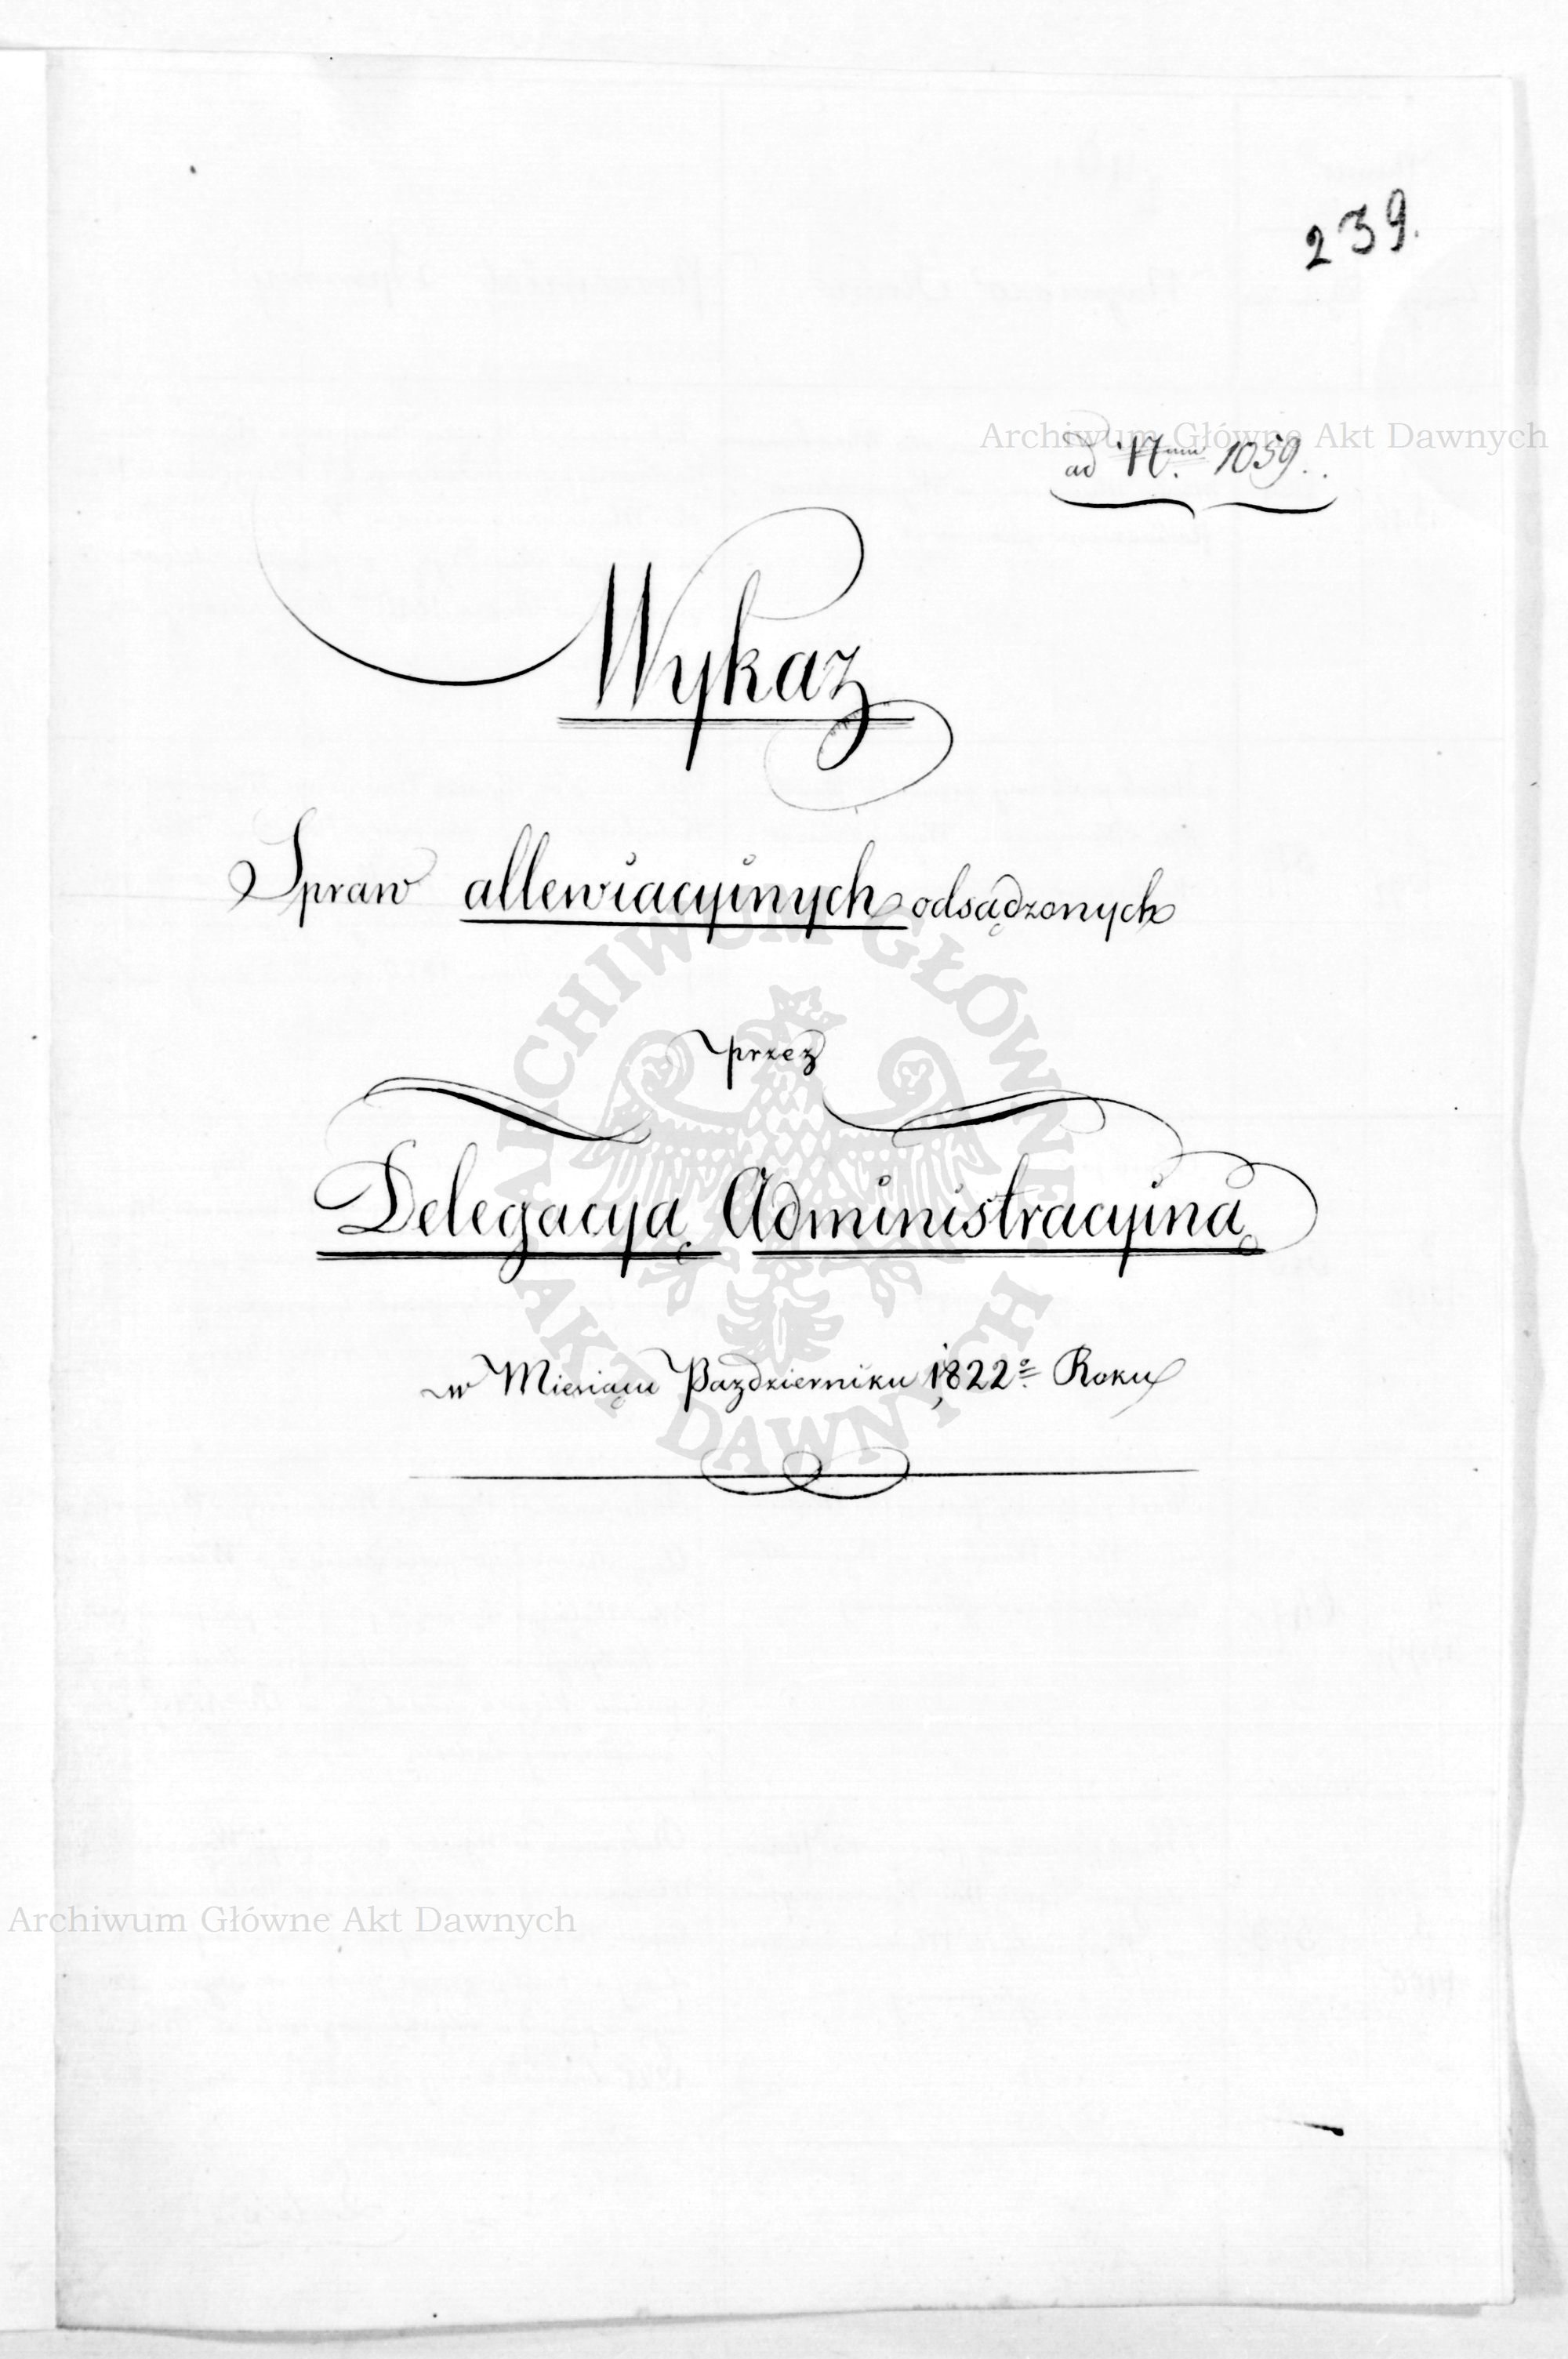 239.
Archiwum Główne Akt Dawnych
ad Num 1059.
Wykaz
Spraw allewiacyinych odsądzonych
przez
Delegacyą Administracyiną
w Miesiącu Pazdzierniku 1822o Roku
ARCHIWUM GŁÓWNE
AKT DAWNYCH
Archiwum Główne Akt Dawnych